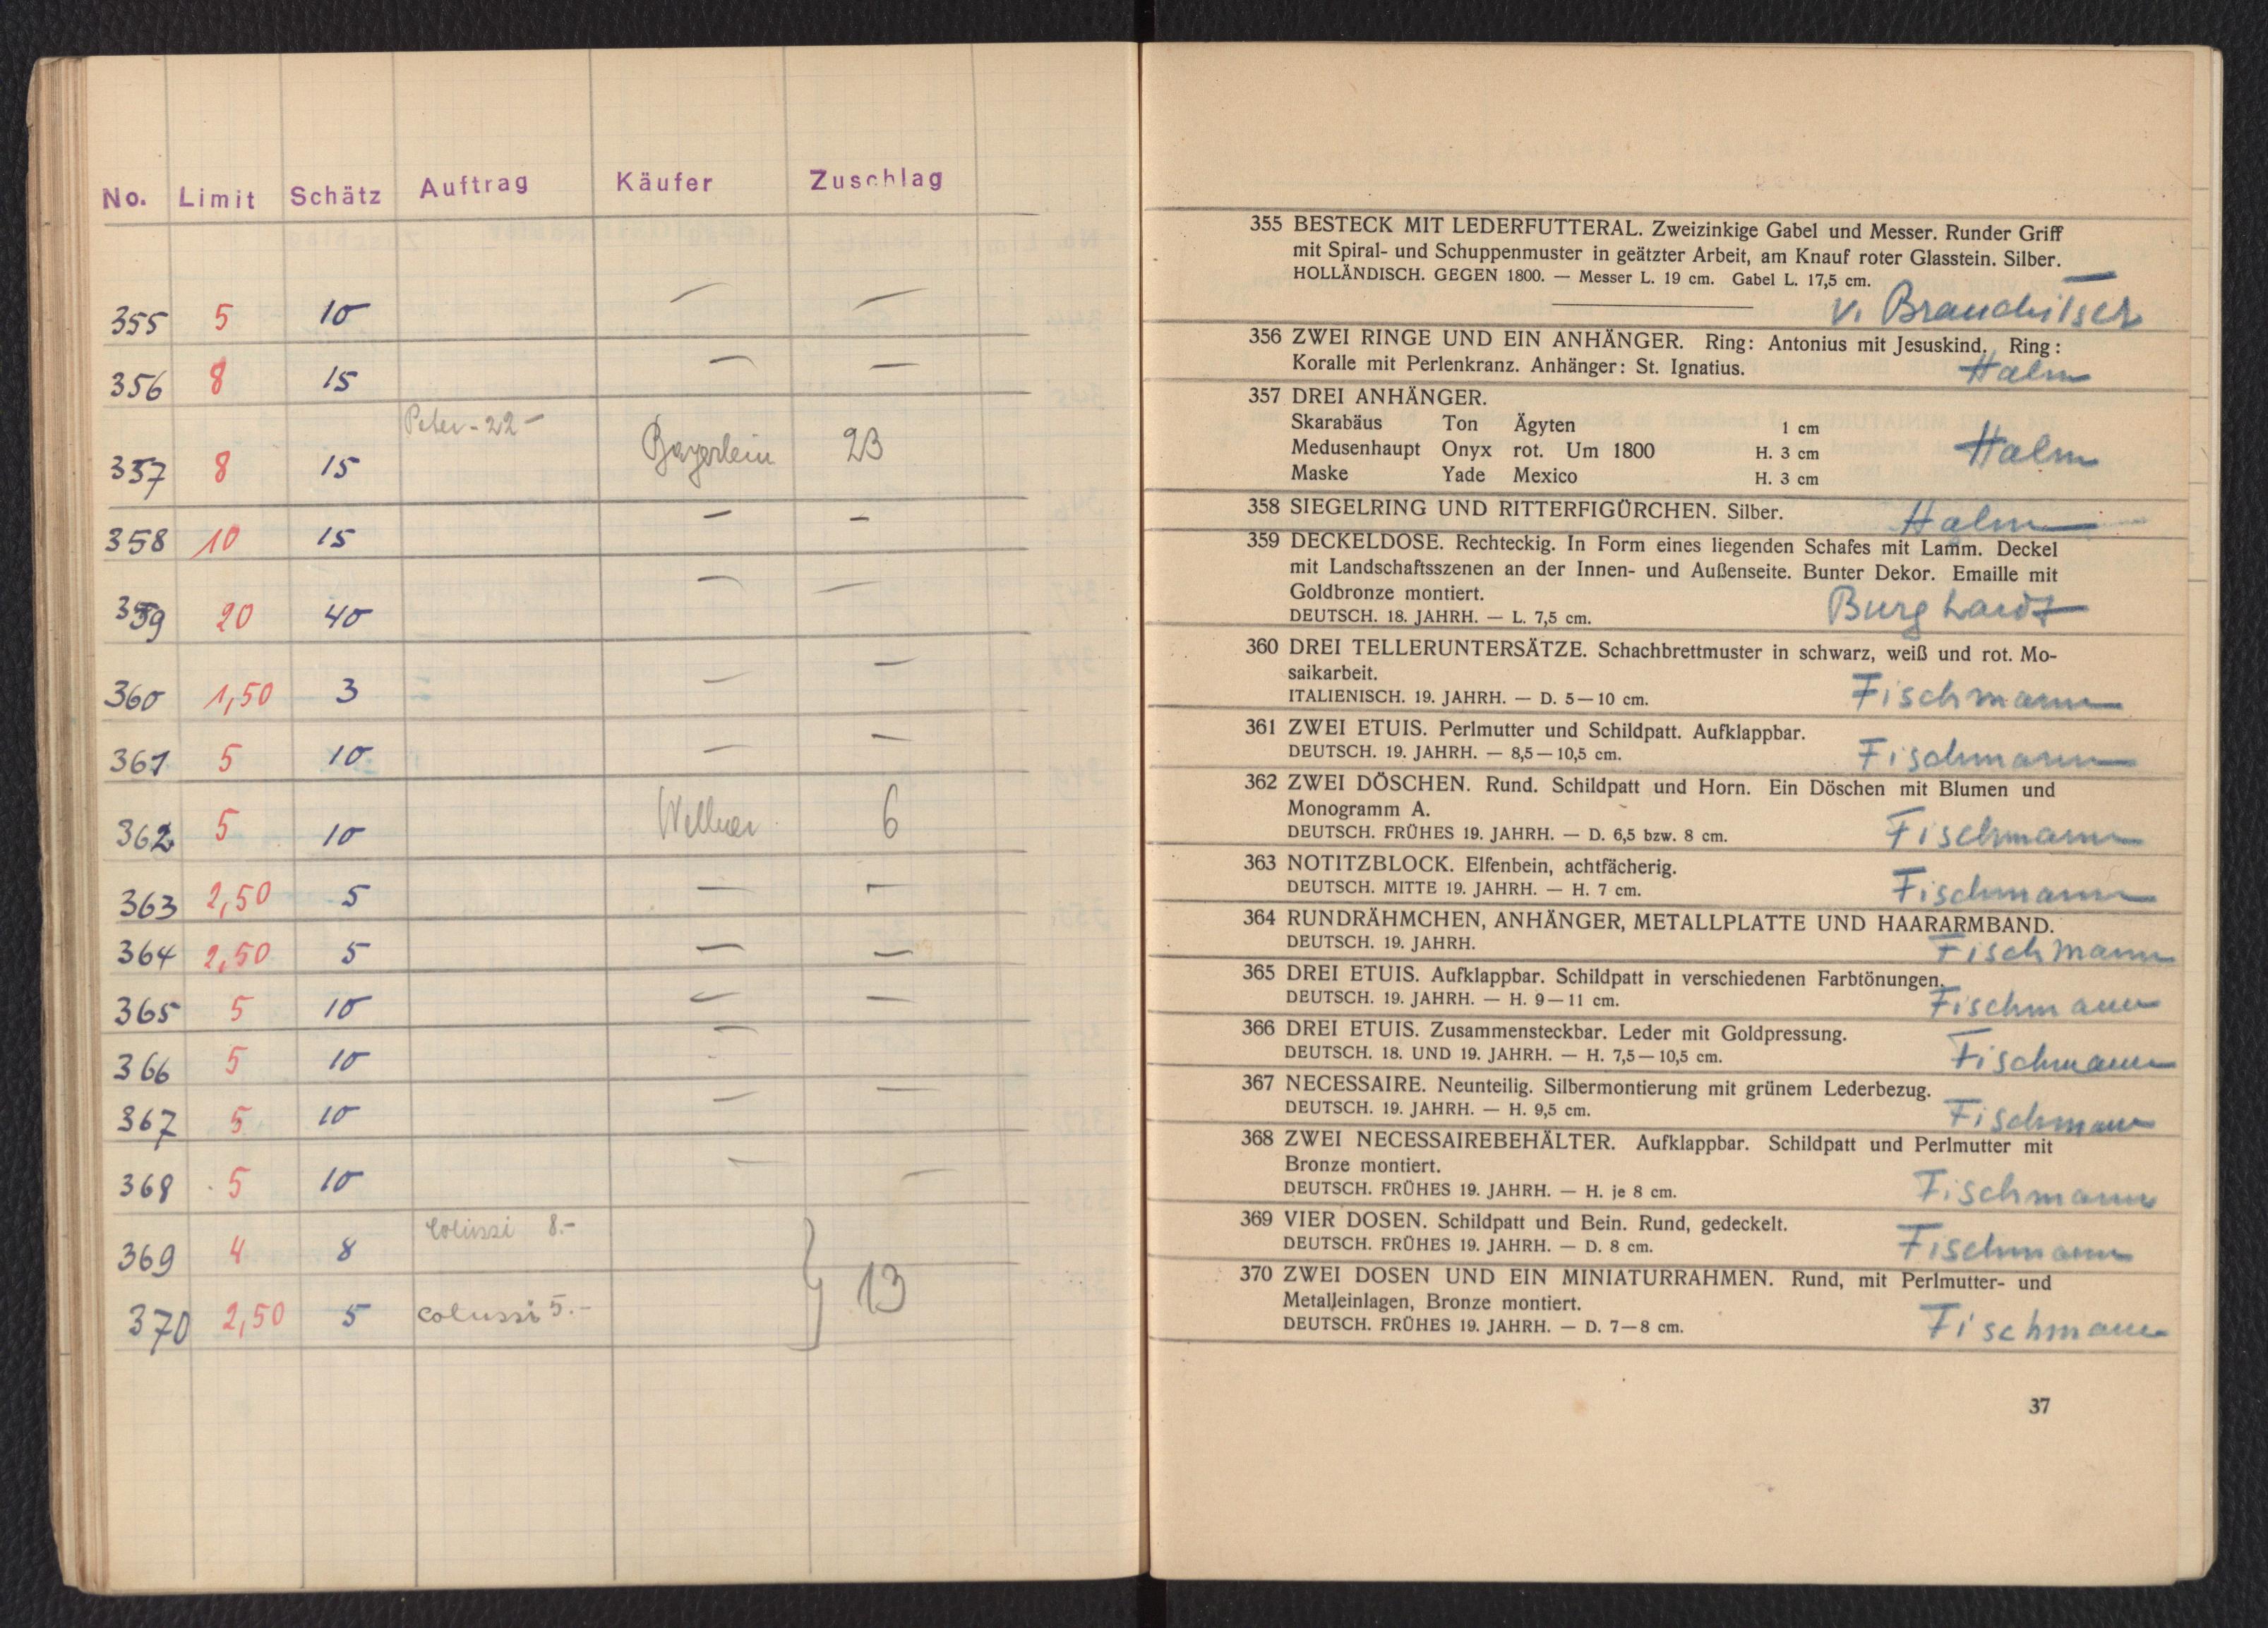 No. Limit Schätz Auftrag Käufer Zuschlag
355 5 10 — —
356 8 15 — —
Peter - 22 -
357 8 15 Bayerlein 23
358 10 15 — —
359 20 40 — —
360 1,50 3 — —
361 5 10 — —
362 5 10 Wellner 6
363 2,50 5 — —
364 2,50 5 — —
365 5 10 — —
366 5 10 — —
367 5 10 — —
368 5 10 — —
Colussi 8.-
369 4 8
} 13
370 2,50 5 Colussi 5.-
355 BESTECK MIT LEDERFUTTERAL. Zweizinkige Gabel und Messer. Runder Griff
mit Spiral- und Schuppenmuster in geätzter Arbeit, am Knauf roter Glasstein. Silber.
HOLLÄNDISCH. GEGEN 1800. — Messer L. 19 cm. Gabel L. 17,5 cm.
v. Brauchitsch
356 ZWEI RINGE UND EIN ANHÄNGER. Ring: Antonius mit Jesuskind. Ring:
Koralle mit Perlenkranz. Anhänger: St. Ignatius.
Halm
357 DREI ANHÄNGER.
Skarabäus Ton Ägyten 1 cm
Medusenhaupt Onyx rot. Um 1800 H. 3 cm
Halm
Maske Yade Mexico H. 3 cm
358 SIEGELRING UND RITTERFIGÜRCHEN. Silber.
Halm
359 DECKELDOSE. Rechteckig. In Form eines liegenden Schafes mit Lamm. Deckel
mit Landschaftsszenen an der Innen- und Außenseite. Bunter Dekor. Emaille mit
Goldbronze montiert.
Burghardt
DEUTSCH. 18. JAHRH. — L. 7,5 cm.
360 DREI TELLERUNTERSÄTZE. Schachbrettmuster in schwarz, weiß und rot. Mo-
saikarbeit.
ITALIENISCH. 19. JAHRH. — D. 5—10 cm.
Fischmann
361 ZWEI ETUIS. Perlmutter und Schildpatt. Aufklappbar.
DEUTSCH. 19. JAHRH. — 8,5—10,5 cm.
Fischmann
362 ZWEI DÖSCHEN. Rund. Schildpatt und Horn. Ein Döschen mit Blumen und
Monogramm A.
DEUTSCH. FRÜHES 19. JAHRH. — D. 6,5 bzw. 8 cm.
Fischmann
363 NOTITZBLOCK. Elfenbein, achtfächerig.
DEUTSCH. MITTE 19. JAHRH. — H. 7 cm.
Fischmann
364 RUNDRÄHMCHEN, ANHÄNGER, METALLPLATTE UND HAARARMBAND.
DEUTSCH. 19. JAHRH.
Fischmann
365 DREI ETUIS. Aufklappbar. Schildpatt in verschiedenen Farbtönungen.
DEUTSCH. 19. JAHRH. — H. 9—11 cm.
Fischmann
366 DREI ETUIS. Zusammensteckbar. Leder mit Goldpressung.
DEUTSCH. 18. UND 19. JAHRH. — H. 7,5—10,5 cm.
Fischmann
367 NECESSAIRE. Neunteilig. Silbermontierung mit grünem Lederbezug.
DEUTSCH. 19. JAHRH. — H. 9,5 cm.
Fischmann
368 ZWEI NECESSAIREBEHÄLTER. Aufklappbar. Schildpatt und Perlmutter mit
Bronze montiert.
DEUTSCH. FRÜHES 19. JAHRH. — H. je 8 cm.
Fischmann
369 VIER DOSEN. Schildpatt und Bein. Rund, gedeckelt.
DEUTSCH. FRÜHES 19. JAHRH. — D. 8 cm.
Fischmann
370 ZWEI DOSEN UND EIN MINIATURRAHMEN. Rund, mit Perlmutter- und
Metalleinlagen, Bronze montiert.
DEUTSCH. FRÜHES 19. JAHRH. — D. 7—8 cm.
Fischmann
37